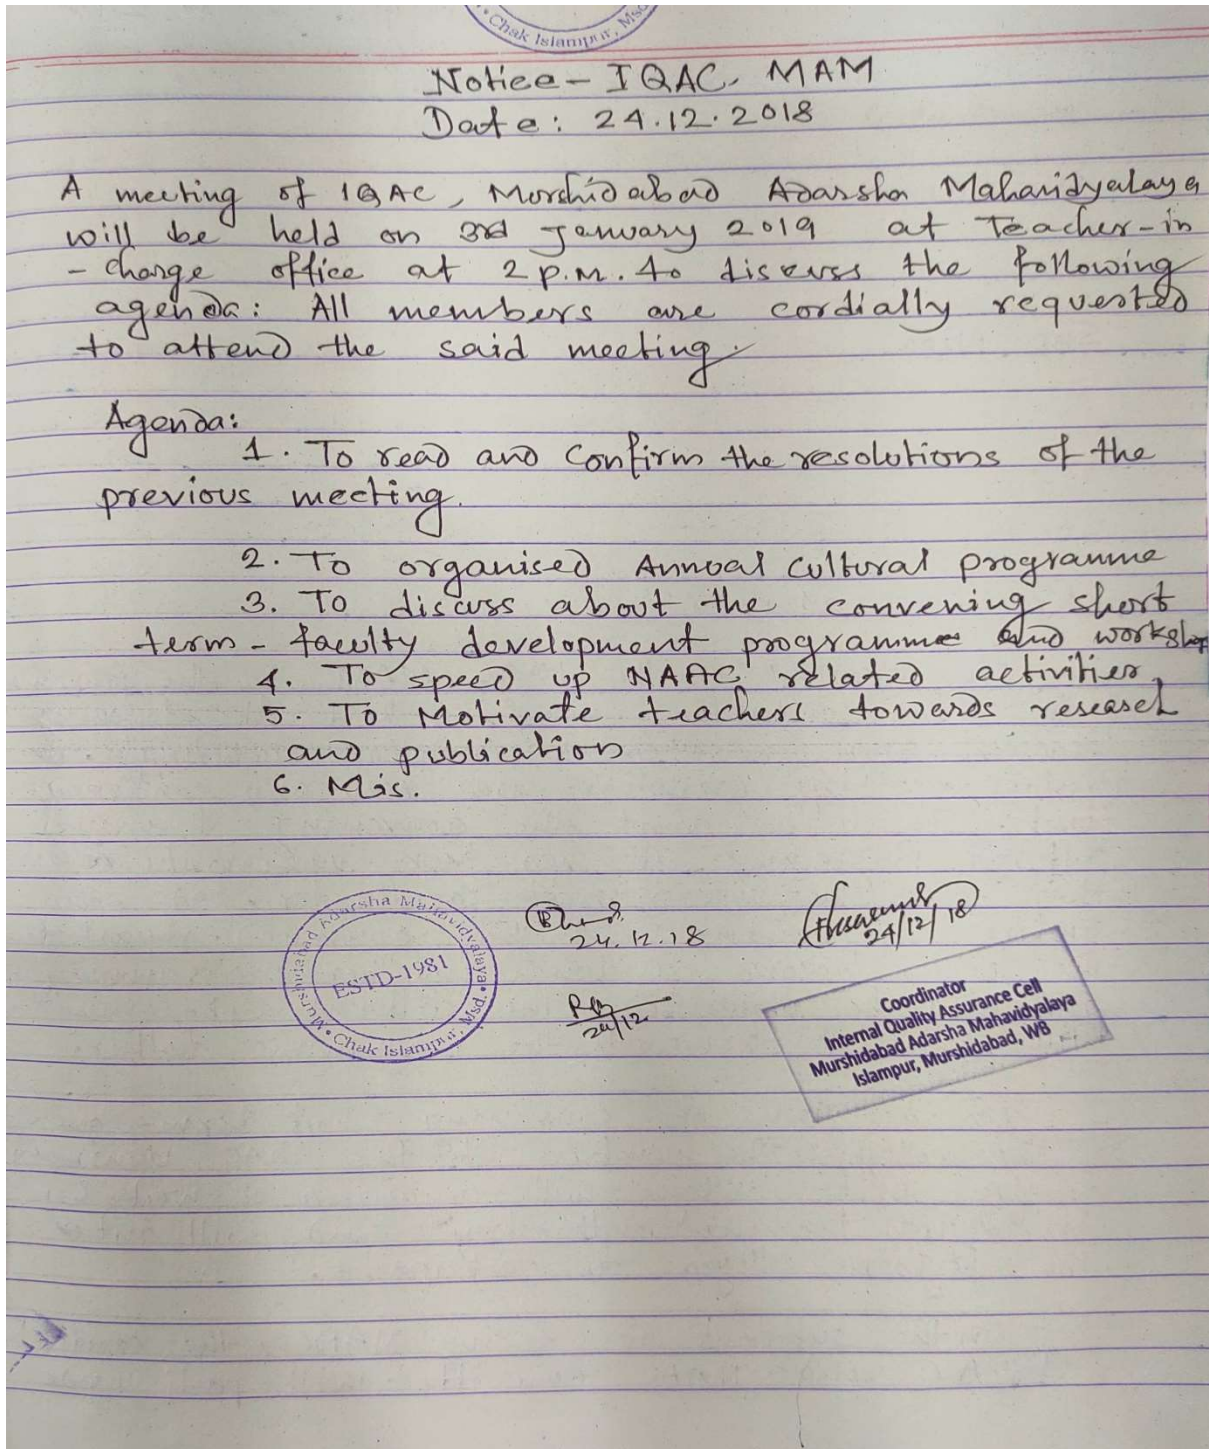 Chak Islampur, Msd
Notice - IQAC, MAM
Date: 24.12.2018
A meeting of IQAC, Morshidabad Adarsha Mahavidyalaya
will be held on 3rd January 2019 at Teacher-in
- charge office at 2 p.m. to discuss the following
agenda: All members are cordially requested
to attend the said meeting.
Agenda:
1. To read and confirm the resolutions of the
previous meeting.
2. To organised Annual cultural programme
3. To discuss about the convening short
term - faculty development programme and workshop
4. To speed up NAAC related activities,
5. To Motivate teachers towards research
and publication
6. Mis.
Murshidabad Adarsha Mahavidyalaya
ESTD-1981
Chak Islampur, Msd.
24.12.18
24/12
24/12/18
Coordinator
Internal Quality Assurance Cell
Murshidabad Adarsha Mahavidyalaya
Islampur, Murshidabad, WB